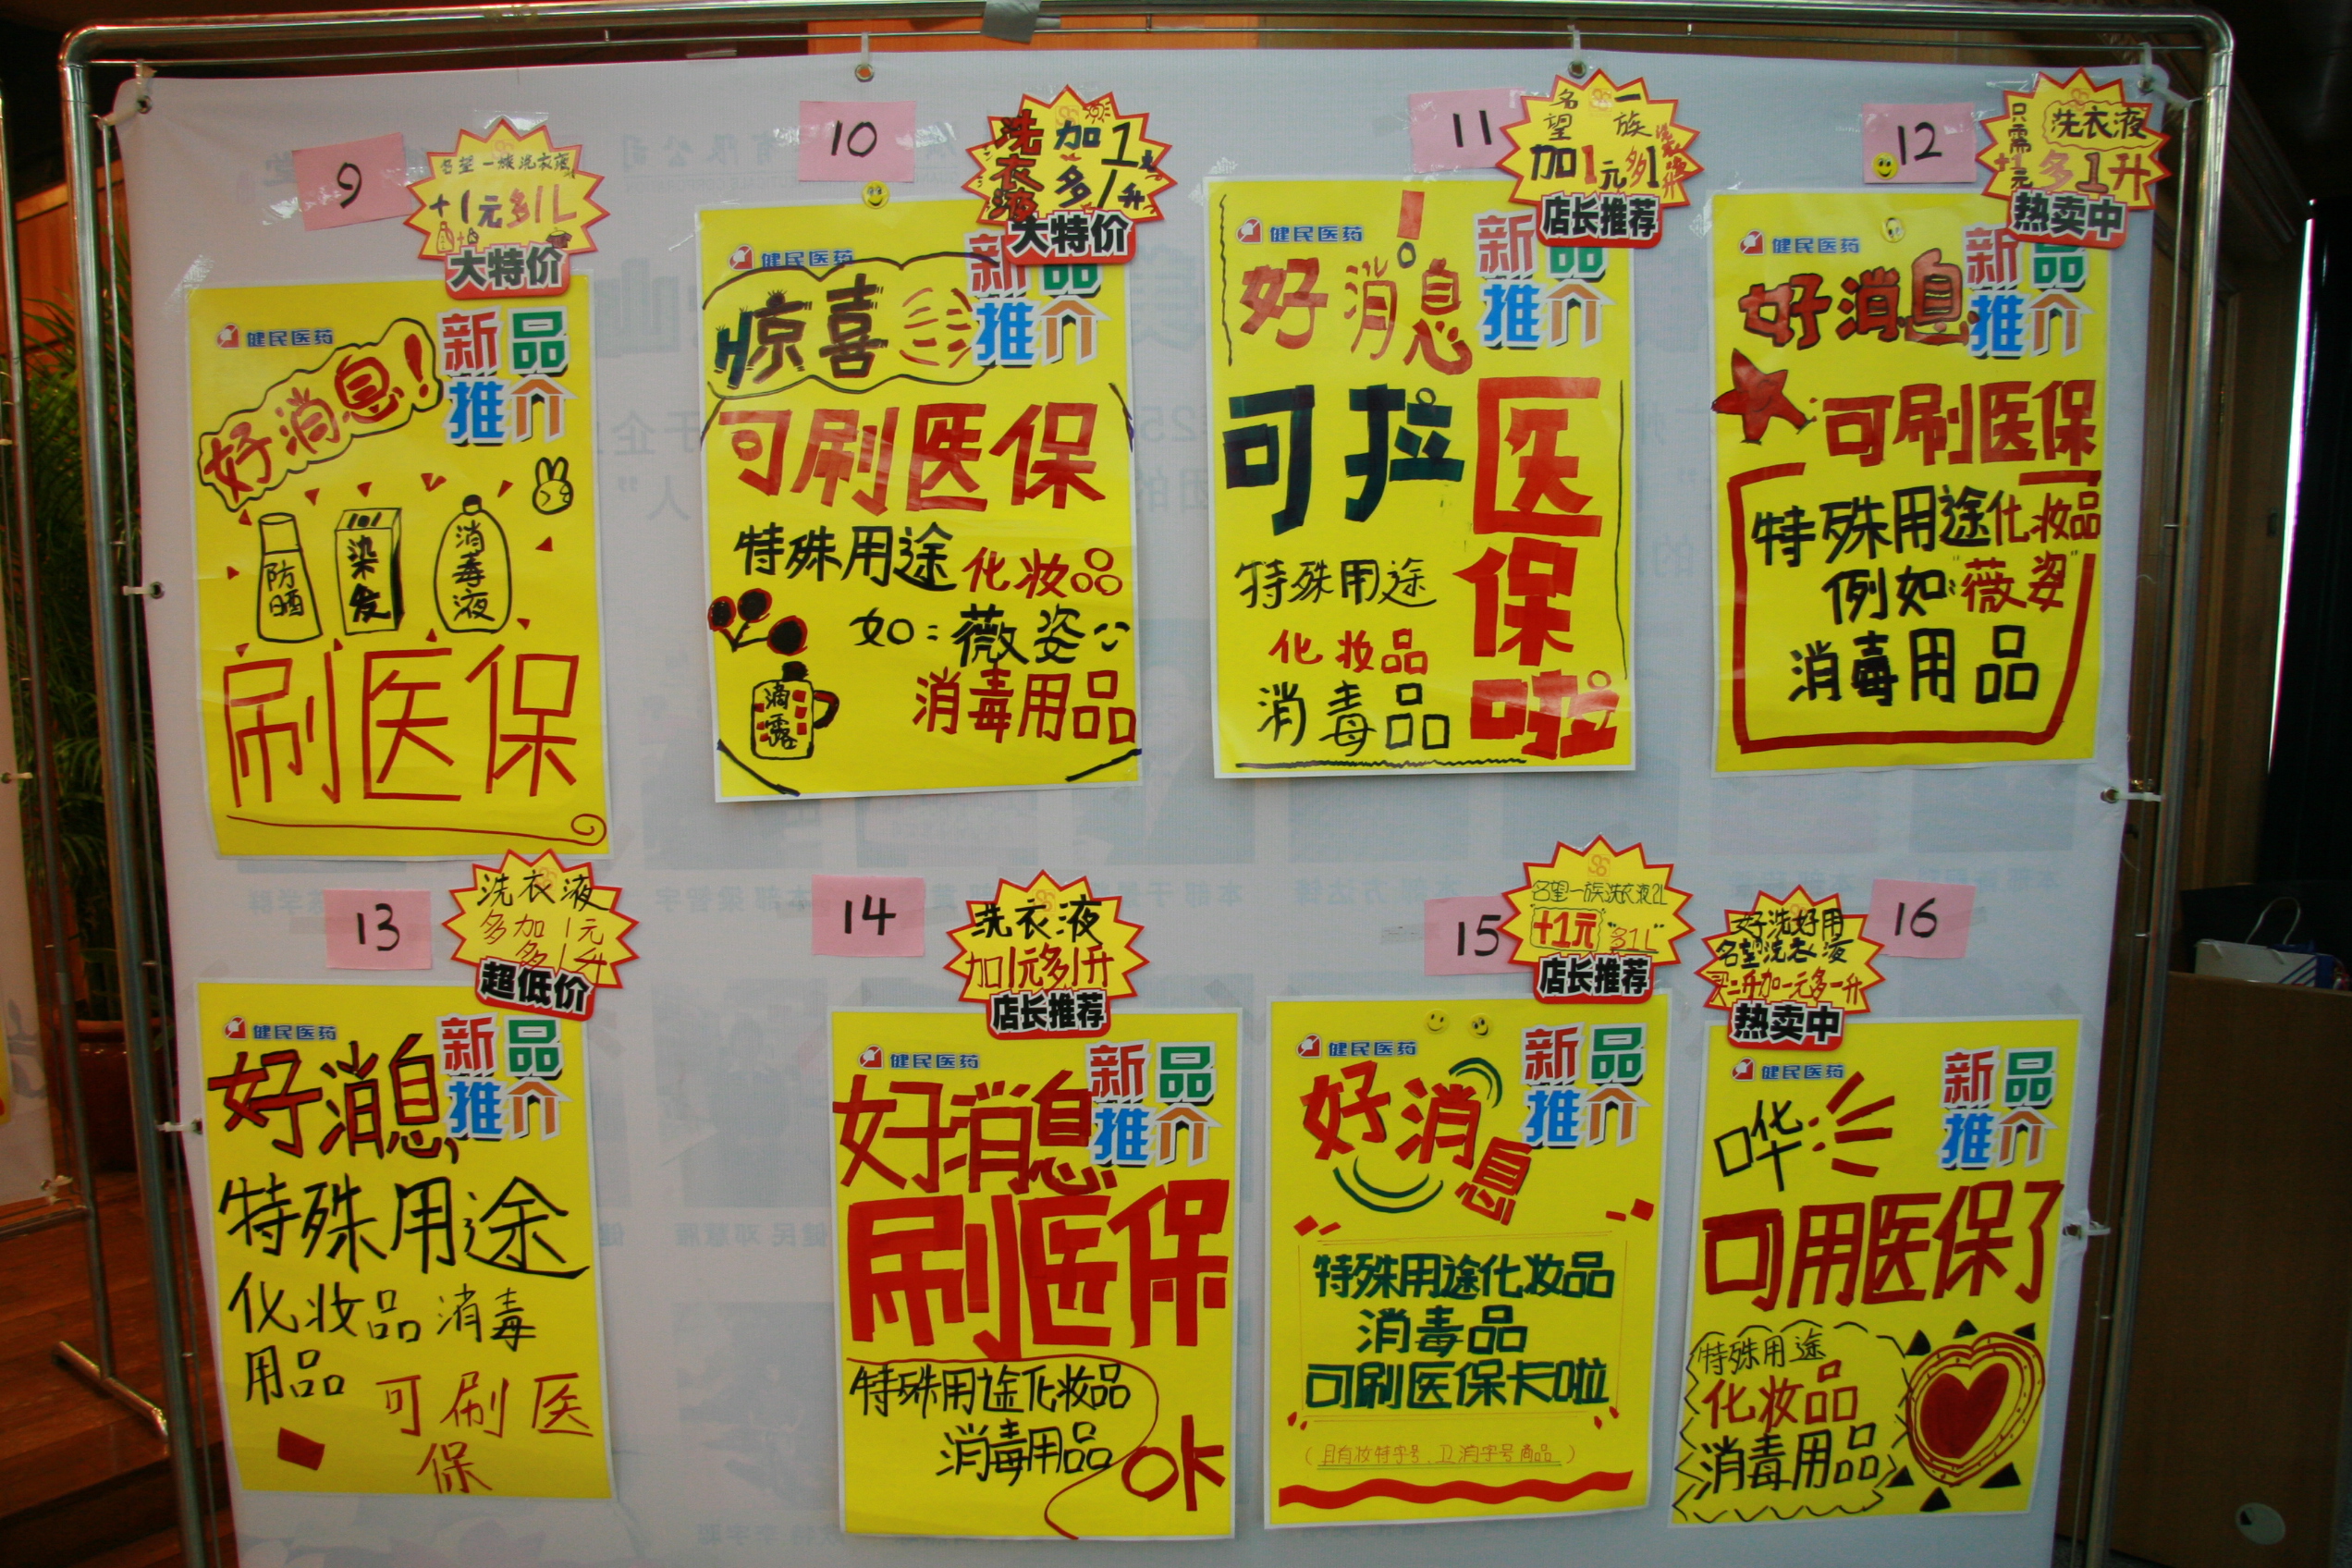 9
名望一族洗衣液
+1元多1L
大特价
健民医药
新品
推介
好消息!
防晒
染发
消毒液
刷医保
10
洗衣液
加1元
多1升
大特价
健民医药
新品
推介
惊喜
可刷医保
特殊用途化妆品
如:薇姿
滴露
消毒用品
11
名望一族
加1元多1升
店长推荐
健民医药
新品
推介
好消息!
可拉医保啦
特殊用途
化妆品
消毒品
12
只需+1元
洗衣液
多1升
热卖中
健民医药
新品
推介
好消息
可刷医保
特殊用途化妆品
例如:"薇姿"
消毒用品
13
洗衣液
多加1元
多1升
超低价
健民医药
新品
推介
好消息,
特殊用途
化妆品消毒
用品
可刷医
保
14
洗衣液
加1元多1升
店长推荐
健民医药
新品
推介
好消息
刷医保
特殊用途化妆品
消毒用品
OK
15
名望一族洗衣液2L
+1元"多1L"
店长推荐
健民医药
新品
推介
好消息
特殊用途化妆品
消毒品
可刷医保卡啦
(目有妆特字号、卫消字号商品)
16
好洗好用
名望洗衣液
买二升加一元多一升
热卖中
健民医药
新品
推介
哗
可用医保了
特殊用途
化妆品
消毒用品